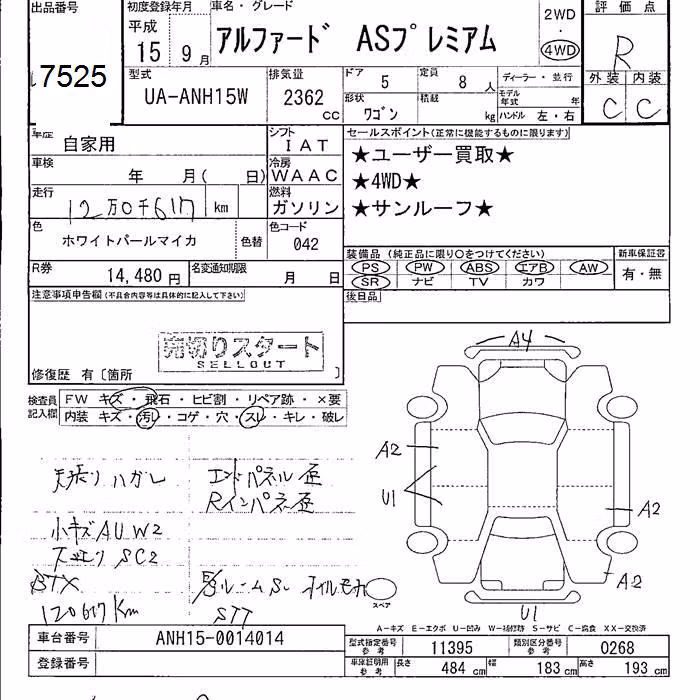 出品番号 初度登録年月 車名・グレード 評価点
平成 15 9月 アルファード ASプレミアム 2WD・4WD R
7525 外装 内装
型式 排気量 ドア 5 定員 8人 ディーラー・並行 C C
UA-ANH15W 2362 cc 形状 ワゴン 積載 kg モデル年式 年
ハンドル 左・右
車歴 自家用 シフト IAT セールスポイント(正常に機能するものに限ります)
車検 年 月(日) 冷房 WAAC ★ユーザー買取★
走行 12万0千617 km 燃料 ガソリン ★4WD★
★サンルーフ★
色 ホワイトパールマイカ 色替 色コード 042
装備品(純正品に限り○をつけてください) 新車保証書
R券 14,480円 名変通知期限 月 日 PS PW ABS エアB AW 有・無
SR ナビ TV カワ
注意事項申告欄(不具合内容等は具体的に記入して下さい) 後日品
売切りスタート
SELLOUT
修復歴 有〔箇所 〕
検査員記入欄 FW キズ・飛石・ヒビ割・リペア跡・×要
内装 キズ・汚レ・コゲ・穴・スレ・キレ・破レ
A4
A2
U1
A2
A2
U1
天張りハガレ エンドパネル歪
Rインパネ歪
小キズAU W2
下廻り SC2
BTX ルームSL オイルモレ
120617Km STT
スペア
A-キズ E-エクボ U-凹み W-補修跡 S-サビ C-腐食 XX-交換済
車台番号 ANH15-0014014 型式指定番号参考 11395 類別区分番号参考 0268
登録番号 車庫証明用参考 長さ 484cm 幅 183cm 高さ 193cm